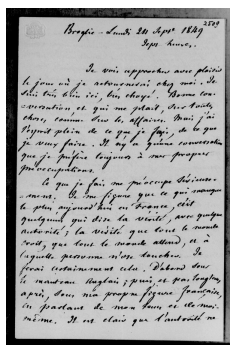 2509
Broglie - Lundi 24 Sept 1849
Sept heures.
Je vois approcher avec plaisir
le jour où je retournerai chez moi. Je
suis très bien ici, très choyé. Bonne con-
versation et qui me plaît, sur toutes
choses, comme sur les affaires. Mais j'ai
l'esprit plein de ce que j'ai, de ce que
je veux faire. Il n'y a aucune conversation
que je préfère toujours à mes propres
préoccupations.
Ce que je fais me préoccupe sérieuse-
-ment. Je me figure que ce qui manque
le plus aujourd'hui en France, c'est
quelqu'un qui dise la vérité, avec quelque
autorité; la vérité que tout le monde
croit, que tout le monde attend, et à
laquelle personne n'ose toucher. Je
ferai certainement cela. D'abord sous
le manteau Anglais; puis, et pas longtems
après, sous ma propre figure française,
en parlant de mon tems et de moi-
même. Il est clair que l'autorité ne